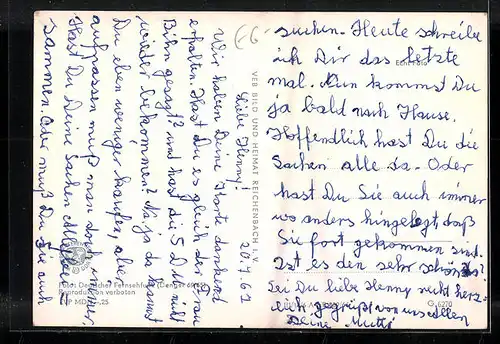 20.7.61
Liebe Henny!
Wir haben Deine Karte dankend
erhalten. Hast Du es gleich der Frau
Bihn gesagt? und hast die 5 DM nicht
wieder bekommen? Na ja da kannst
Du eben weniger kaufen, aber
aufpassen muß man doch immer.
Hast Du Deine Sachen alle
sammen. Oder mußt Du sie auch
suchen. Heute schreibe
ich Dir das letzte
mal. Nun kommst Du
ja bald nach Hause.
Hoffendlich hast Du die
Sachen alle da. Oder
hast Du Sie auch immer
wo anders hingelegt daß
Sie fort gekommen sind.
Ist es den sehr schön
Sei Du liebe Henny recht herz-
lich gegrüßt von uns allen
Deine Mutti
VEB BILD UND HEIMAT REICHENBACH i. V.
Foto: Deutscher Fernsehfunk
Reproduktion verboten
G 6270